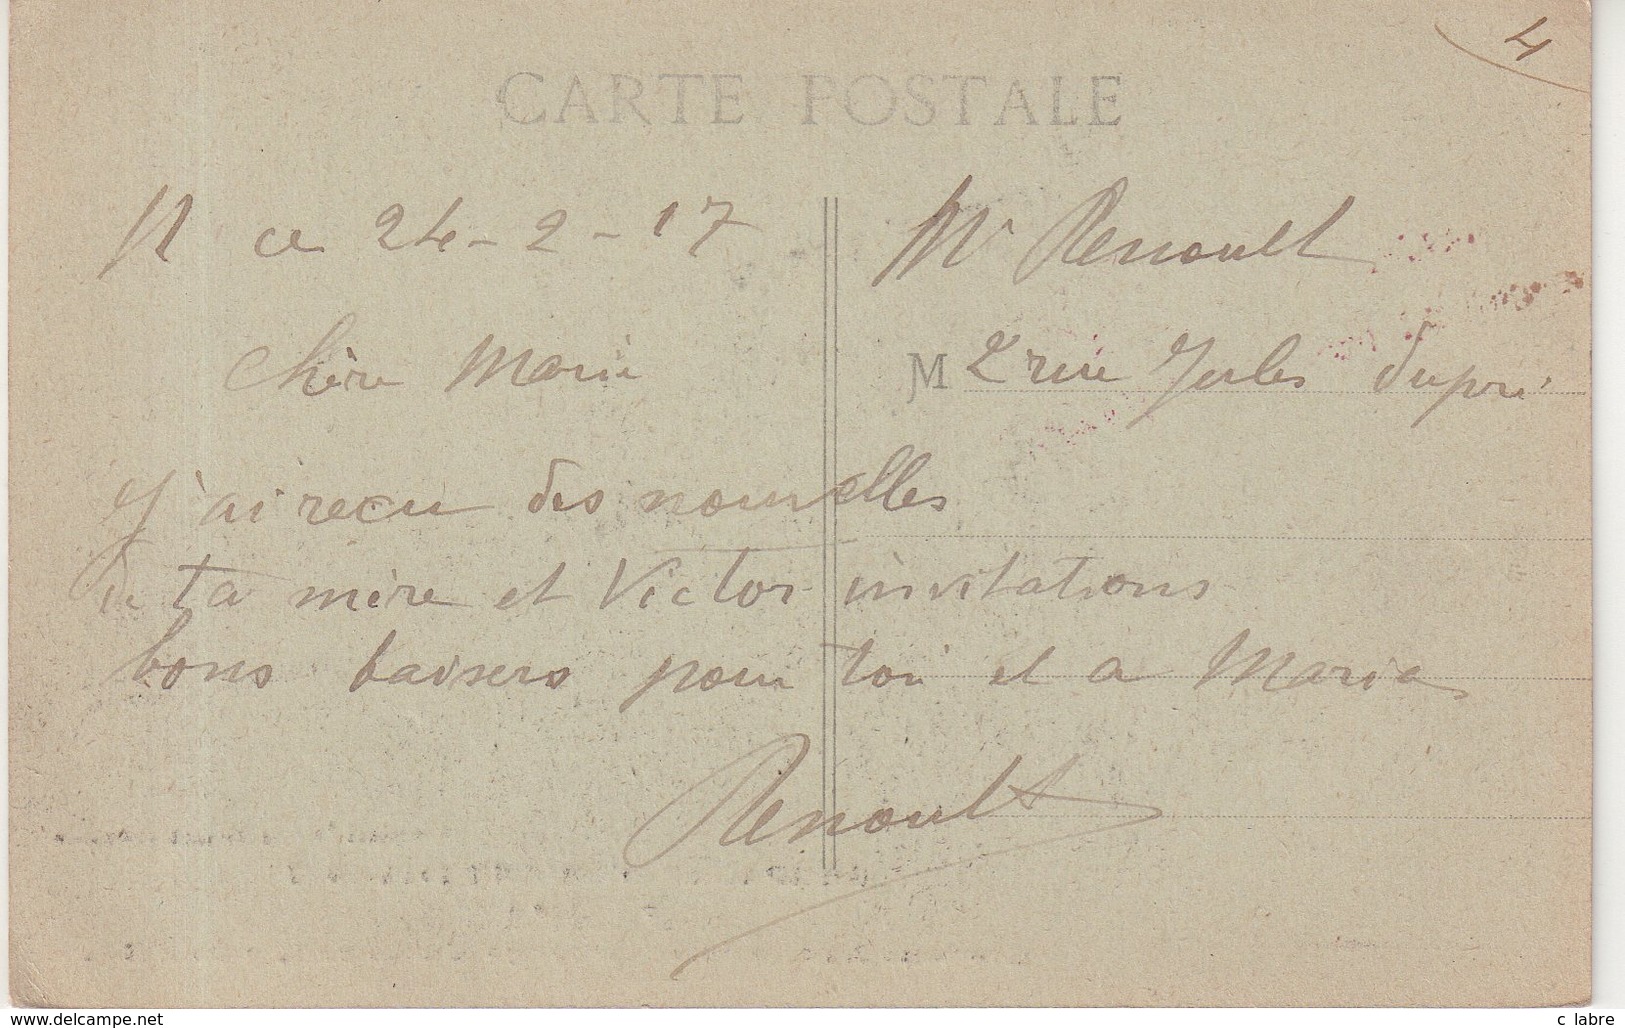 4
CARTE POSTALE
N ce 24-2-17
Mr Renoult
Chère Marie
M 2 rue Jules dupré
J'ai recu des nouvelles
de ta mère et Victor invitations
bons baisers pour toi et a Maria
Renoult
www.delcampe.net
c labre